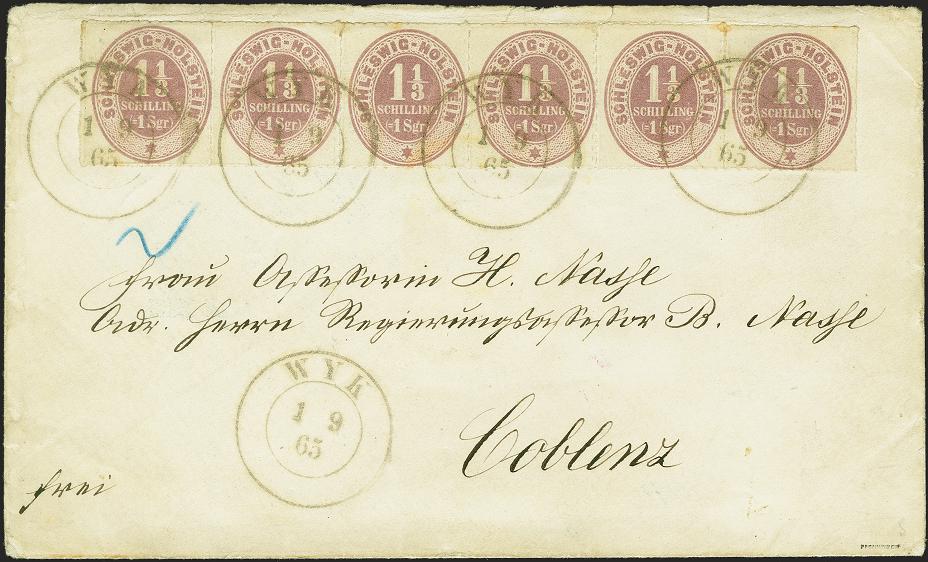 SCHLESWIG-HOLSTEIN SCHLESWIG-HOLSTEIN SCHLESWIG-HOLSTEIN SCHLESWIG-HOLSTEIN SCHLESWIG-HOLSTEIN SCHLESWIG-HOLSTEIN
1 1/3 1 1/3 1 1/3 1 1/3 1 1/3 1 1/3
SCHILLING SCHILLING SCHILLING SCHILLING SCHILLING SCHILLING
(=1 Sgr) (=1 Sgr) (=1 Sgr) (=1 Sgr) (=1 Sgr) (=1 Sgr)
WYK WYK WYK WYK
1 9 1 9 1 9 1 9
65 65 65 65
Frau Assessorin H. Nasse
Adr. Herrn Regierungsassessor B. Nasse
WYK
1 9
65
Coblenz
frei